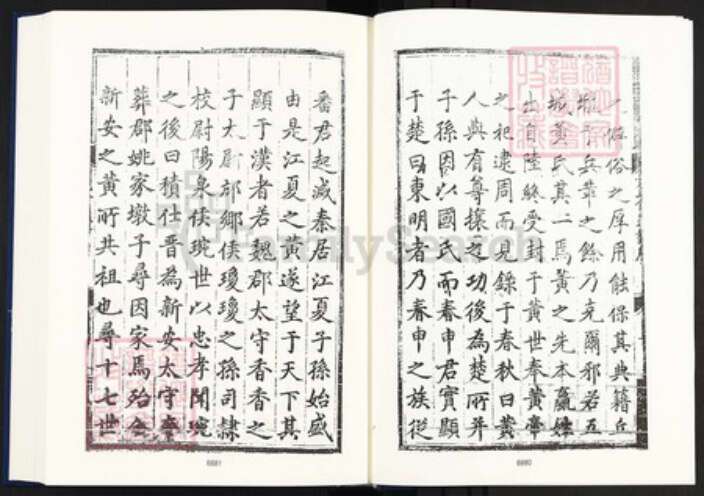 俗之厚用能保其典籍丘
兵革之餘乃克爾邪若五
城黃氏其一焉黃之先本嬴姓
出自陸終受封于黃世奉黃帝
之祀逮周而見錄于春秋曰黃
人與有尊攘之功後為楚所并
子孫因以國氏而春申君實顯
于楚曰東明者乃春申之族從
番君起滅秦居江夏子孫始盛
由是江夏之黃遂望于天下其
顯于漢者若魏郡太守香香之
子太尉邟鄉侯瓊瓊之孫司隸
校尉陽泉侯琬世以忠孝聞琬
之後曰積仕晉為新安太守卒
葬郡姚家墩子尋因家焉
新安之黃所共祖也尋十七世
6680
6681
FamilySearch